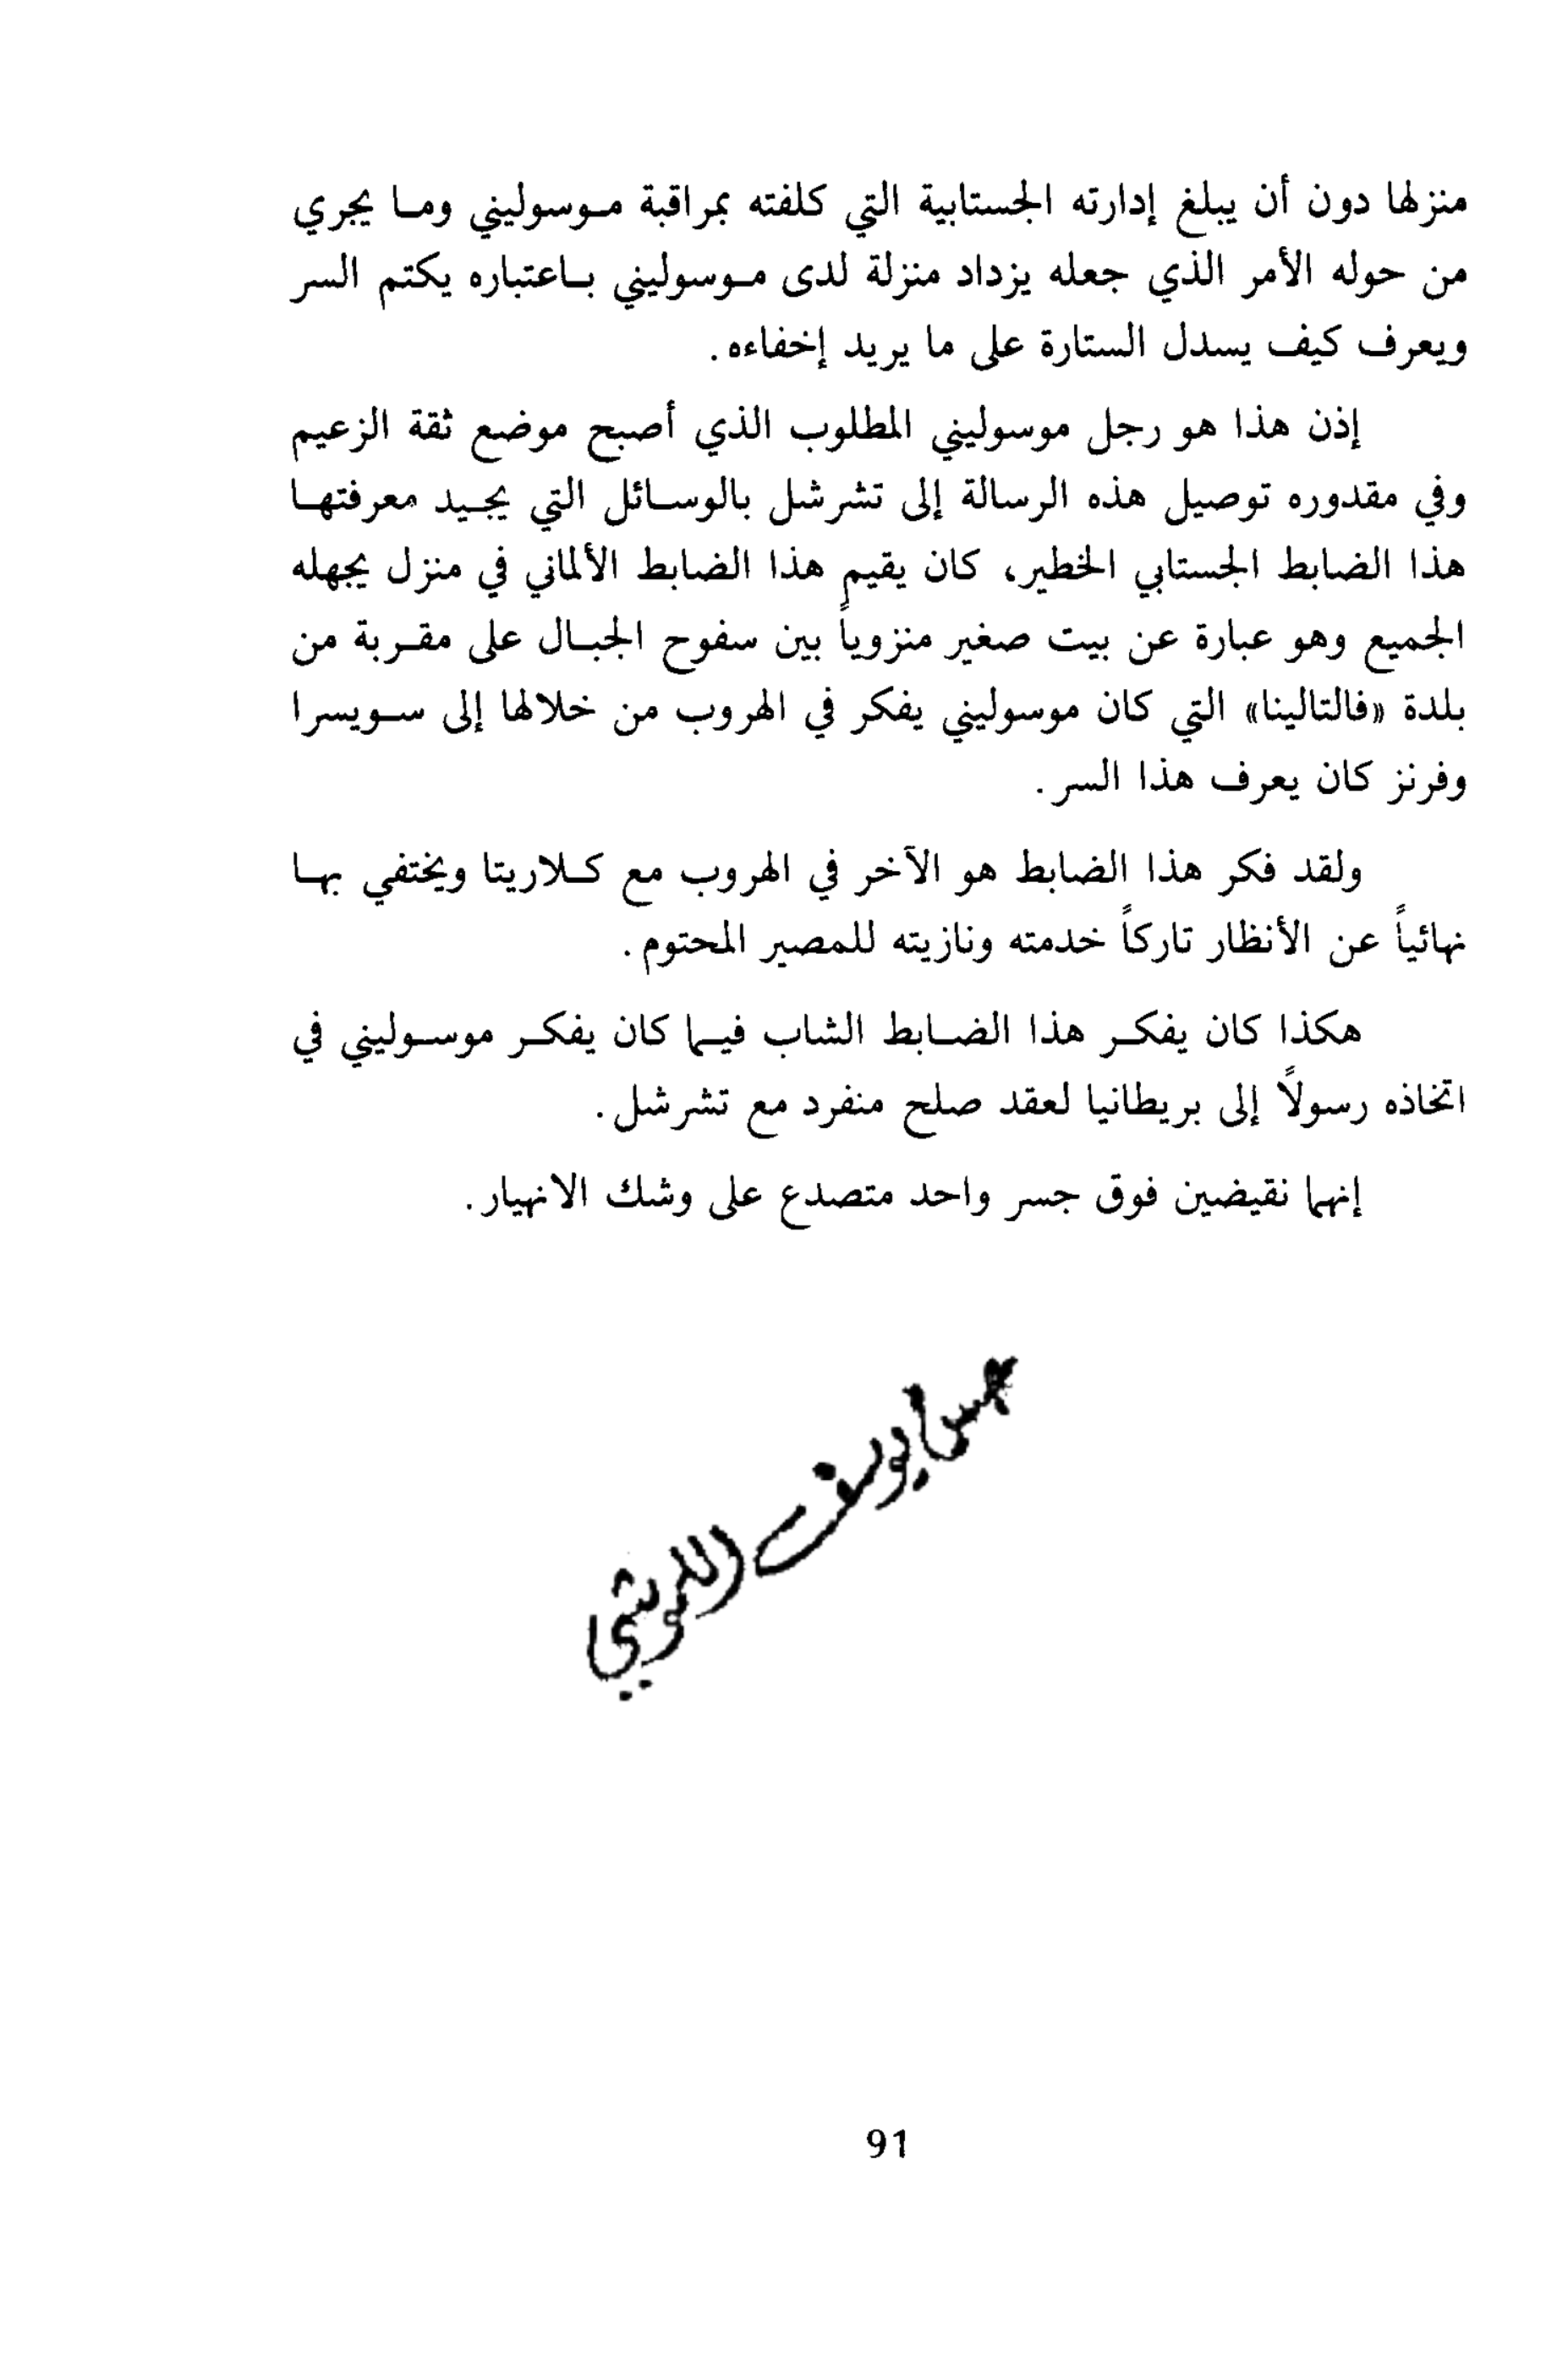 منزلها دون أن يبلغ إدارته الجستابية التي كلفته بمراقبة موسوليني وما يجري
من حوله الأمر الذي جعله يزداد منزلة لدى موسوليني باعتباره يكتم السر
ويعرف كيف يسدل الستارة على ما يريد إخفاءه.
إذن هذا هو رجل موسوليني المطلوب الذي أصبح موضع ثقة الزعيم
وفي مقدوره توصيل هذه الرسالة إلى تشرشل بالوسائل التي يجيد معرفتها
هذا الضابط الجستابي الخطير، كان يقيم هذا الضابط الألماني في منزل يجهله
الجميع وهو عبارة عن بيت صغير منزوياً بين سفوح الجبال على مقربة من
بلدة «فالتالينا» التي كان موسوليني يفكر في الهروب من خلالها إلى سويسرا
وفرنز كان يعرف هذا السر.
ولقد فكر هذا الضابط هو الآخر في الهروب مع كلاريتا ويختفي بها
نهائياً عن الأنظار تاركاً خدمته ونازيته للمصير المحتوم.
هكذا كان يفكر هذا الضابط الشاب فيما كان يفكر موسوليني في
اتخاذه رسولاً إلى بريطانيا لعقد صلح منفرد مع تشرشل.
إنهما نقيضين فوق جسر واحد متصدع على وشك الانهيار.
يوسف
91